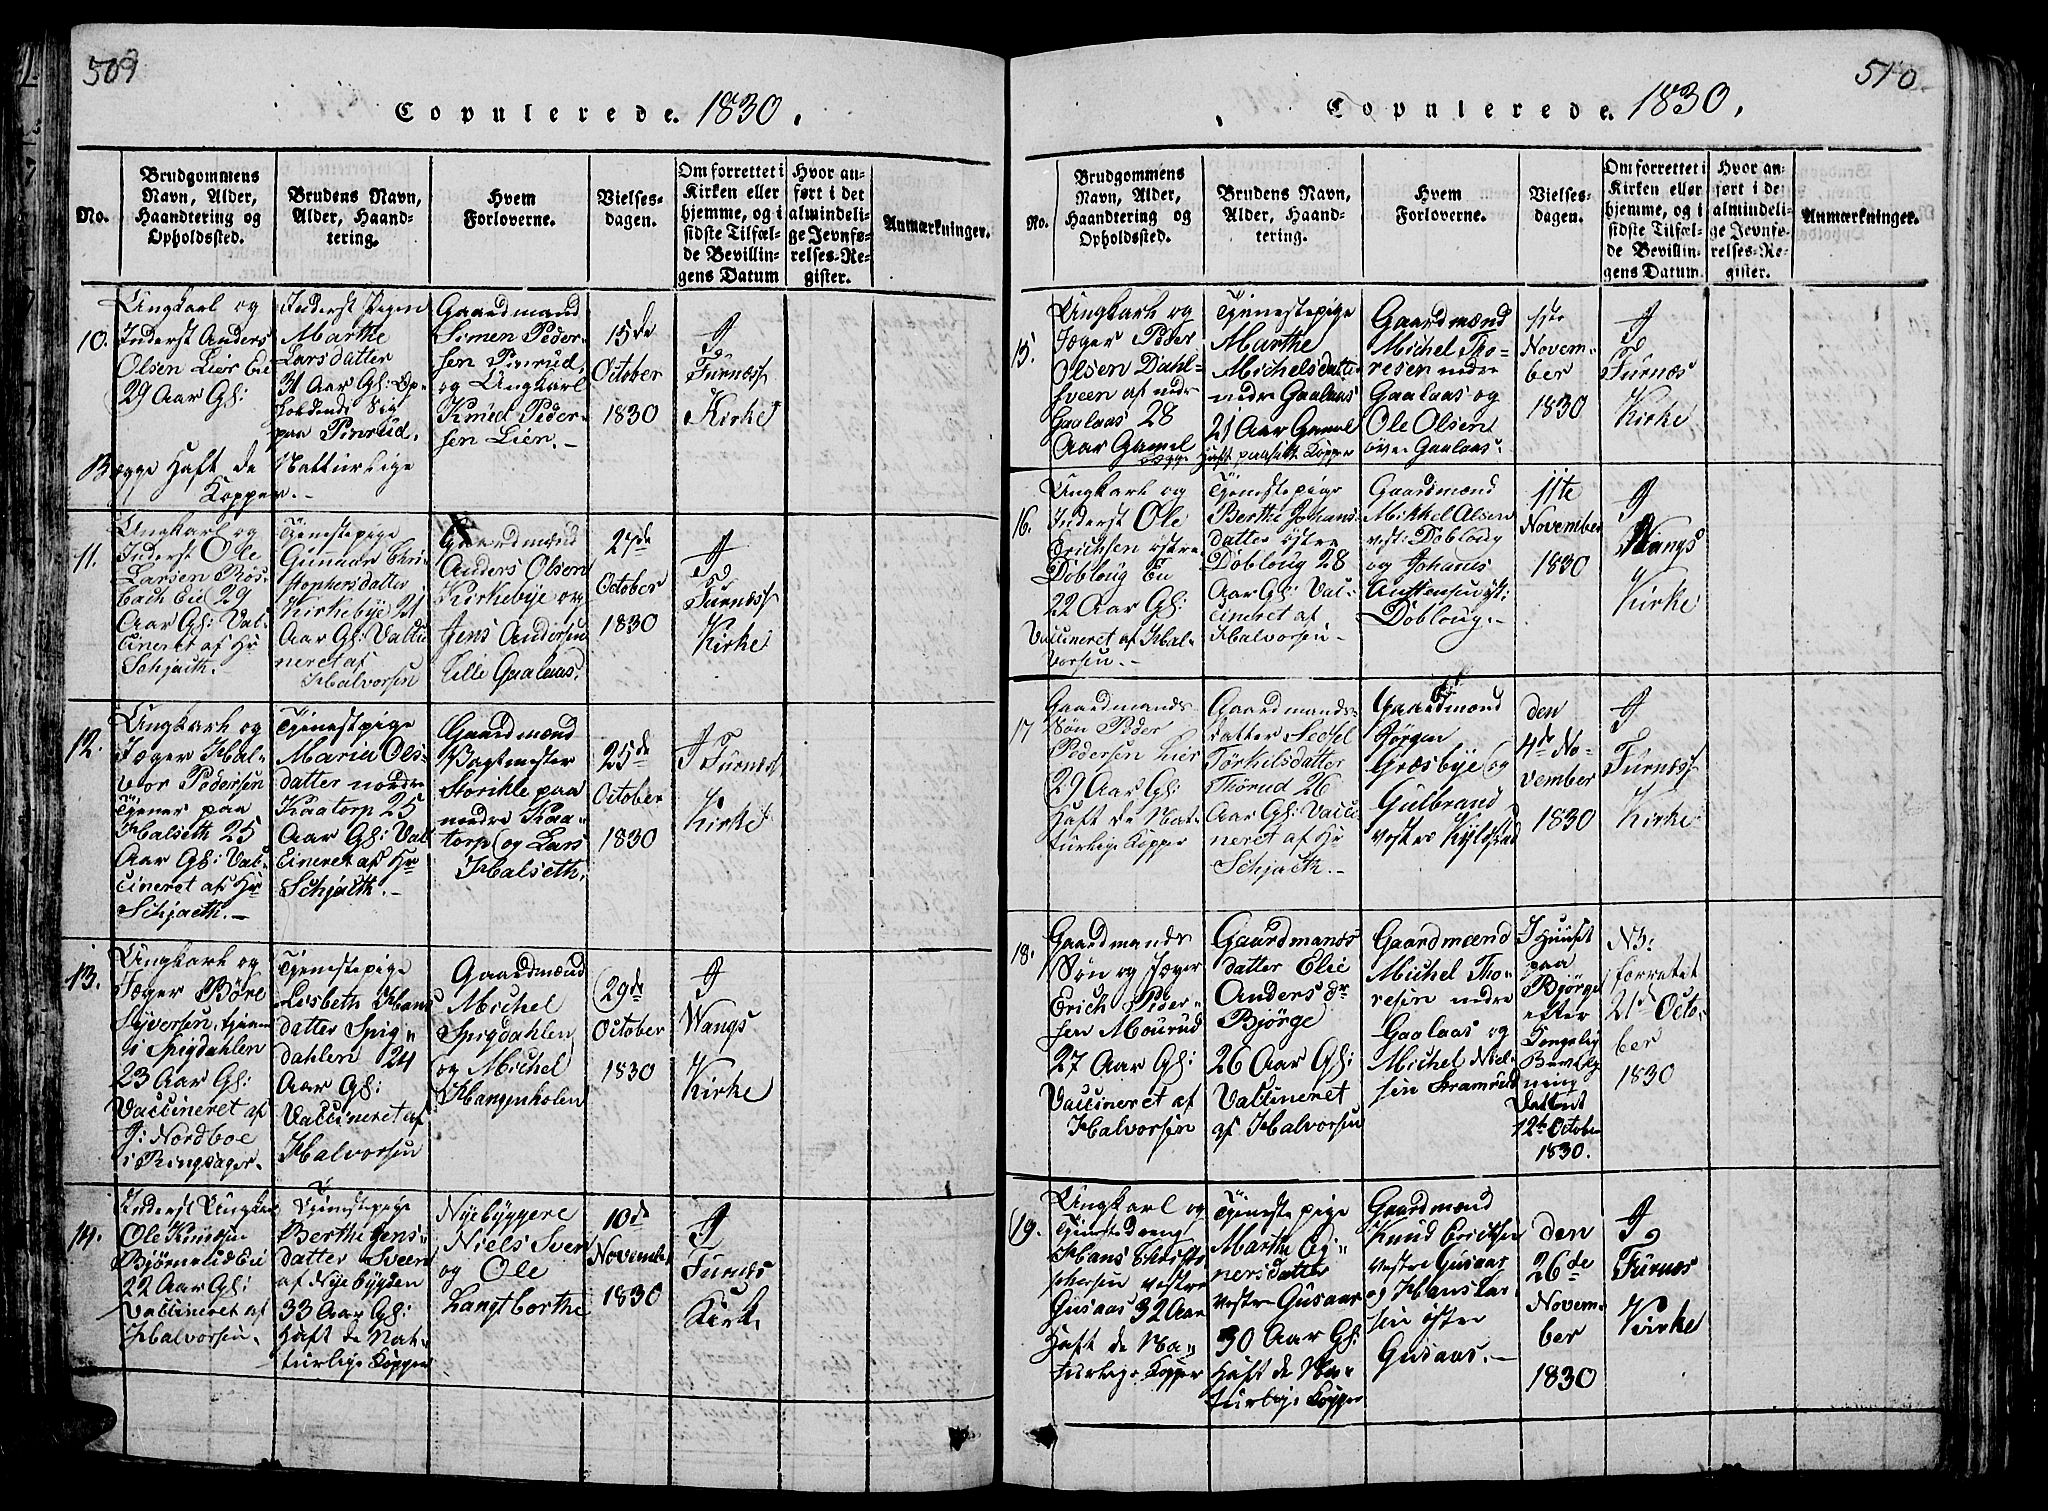 509
Copulerede. 1830.
No.
Brudgommens
Navn, Alder,
Haandtering og
Opholdssted.
Brudens Navn,
Alder, Haand-
tering.
Hvem
Forloverne.
Vielses-
dagen.
Om forrettet i
Kirken eller
hjemme, og i
sidste Tilfæl-
de Bevillin-
gens Datum
Hvor an-
ført i det
almindeli-
ge Jevnfø-
relses-Re-
gister.
Anmærkninger.
10.
Ungkarl og
Inderst Anders
Olsen Lier Eie
29 Aar Gl:
Inderst Pigen
Marthe
Larsdatter
31 Aar Gl: Op-
holdende Sig
paa Pinrud.
Gaardmænd
Simen Peder-
sen Pinrud,
og Ungkarl
Knud Peder-
sen Lien.-
15de
October
1830
I
Furness
Kirke
Begge Haft de Natturlige
Kopper.-
11.
Ungkarl og
Inderst Ole
Larsen Ros-
bach Eie 29
Aar Gl: Vac-
cineret af Hr
Schjøth.
Tjenestepige
Gunnar Chri-
stophersdatter
Kirkebye 31
Aar Gl: Vacci
neret af
Halvorsen
Gaardmænd
Anders Olsen
Kirkebye og
Jens Andersen
Lille Gaalaas.
27de
October
1830
I
Furness
Kirke
12.
Ungkarl og
Jæger Hal-
vor Pedersen
Tjener paa
Halseth 25
Aar Gl: Vac-
cineret af Hr
Schjøth.-
Tjenestpige
Maria Ols-
datter nordre
Kaatorp 25
Aar Gl: Vacc
cineret af Hr
Schjøth.-
Gaardmænd
Vagtmester
Storihle paa
nordre Kaa-
torp og Lars
Halseth.
25de
October
1830
I Furness
Kirke
13.
Ungkarl og
Jæger Børe
Syversen, tjenen
i Spigdahlen
23 Aar Gl:
Vaccineret af
J: Nordboe
i Ringsager.
Tjenestepige
Lisbeth Hans
datter Spig-
dahlen 24
Aar Gl:
Vaccineret af
Halvorsen
Gaardmænd
Michel
Spigdahlen
og Michel
Hangenholen
29de
October
1830
I
Wangs
Kirke
14.
Inderst Ungkar
Ole Knudsen
Bjørnerud Eie
22 Aar Gl:
Vaccineret af
Halvorsen.
Tjenestepige
Berthe Jens-
datter Sveen
af Nyebygden
33 Aar Gl:
Haft de Nat-
turlige Kopper
Nyebyggere
Niels Sven
og Ole
Langtborthe
10de
Novembr
1830
I
Furnæs
Kirk.
510
Copulerede. 1830.
No.
Brudgommens
Navn, Alder,
Haandtering og
Opholdssted.
Brudens Navn,
Alder, Haand-
tering.
Hvem
Forloverne.
Vielses-
dagen.
Om forrettet i
Kirken eller
hjemme, og i
sidste Tilfæl-
de Bevillin-
gens Datum.
Hvor an-
ført i de
almindeli-
ge Jevnfø-
relses-Re-
gister.
Anmærkninger.
15.
Ungkarl og
Jæger Peder
Olsen Dahl-
sveen af nedr
Gaalaas 28
Aar Gamel
Tjenestepige
Marthe
Michelsdatter
nedre Gaalaas
21 Aar Gamel
begge Haft paasatte Kopper
Gaardmænd
Michel Tho-
resen nedre
Gaalaas og
Ole Olsen
øvre Gaalaas.
1ste
Novem-
ber
1830
I
Furnæs
Kirke
16.
Ungkarl og
Inderst Ole
Erichsen østre
Dobloug Eie
22 Aar Gl:
Vaccineret af Hal-
vorsen.-
Tjenestepige
Berthe Johans-
datter østre
Dobloug 28
Aar Gl: Vac-
cineret af
Halvorsen.-
Gaardmænd
Mikkel Alsen
vest: Dobloug
og Johans
Anstensen øst:
Dobloug.-
11te
November
1830
I
Wangs
Kirke
17
Gaardmands
Søn Peder
Pedersen Lier
29 Aar Gl:
Haft de Nat-
turlige Kopper
Gaardmands-
datter Sedsel
Torkelsdatter
Thorud 26
Aar Gl: Vacci
neret af Hr
Schjøth.-
Gaardmænd
Jørgen
Græsbye og
Gulbrand
vestre Kylstad
den
4de No-
vember
1830
I
Furness
Kirke
18.
Gaardmands
Søn og Jæger
Erich Peder-
sen Mourud
27 Aar Gl:
Vaccineret af
Halvorsen
Gaardmands
datter Elie
Anders dr
Bjørge
26 Aar Gl:
Vaccineret
af Halvorsen
Gaardmænd
Michel Tho-
resen nedre
Gaalaas og
Michel Niel-
sen Kramrud
I Huuset
paa
Bjørge
efter
Kongelig
Bevilg
ning
Dattert
12te October
1830.
NB:
forrettet
21de Octo-
ber
1830
19.
Ungkarl og
Tjenstedreng
Hans Christo
phersen vestre
Gusaas 32 Aar
Haft de Na-
turlige Kopper
Tjenestepige
Marthe Ej-
nersdatter
vestre Gusaas
30 Aar Gl:
Haft de Na-
turlige Kopper
Gaardmænd
Knud Erichsen
vestre Gusaas
og Hans Lar-
sen østre
Gusaas.-
den
26de
Novem-
ber
1830
I
Furnæs
Kirke